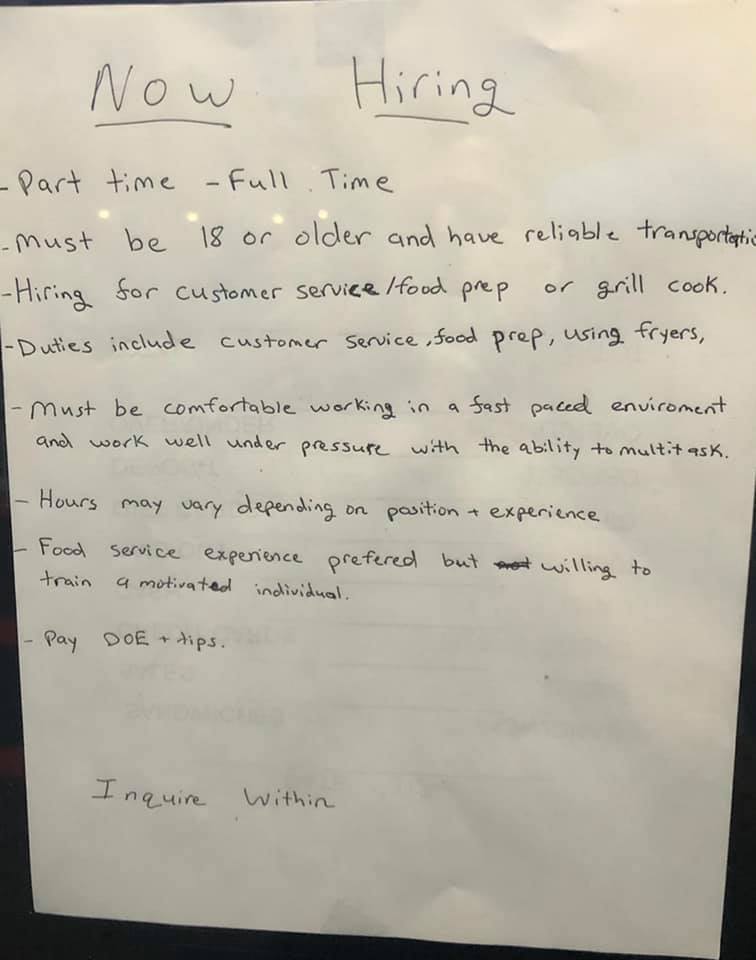 Now Hiring
- Part time - Full Time
- Must be 18 or older and have reliable transportatio
- Hiring for customer service/food prep or grill cook.
- Duties include customer service, food prep, using fryers,
- Must be comfortable working in a fast paced enviroment
and work well under pressure with the ability to multitask.
- Hours may vary depending on position + experience
- Food service experience prefered but not willing to
train a motivated individual.
- Pay DOE + tips.
Inquire Within